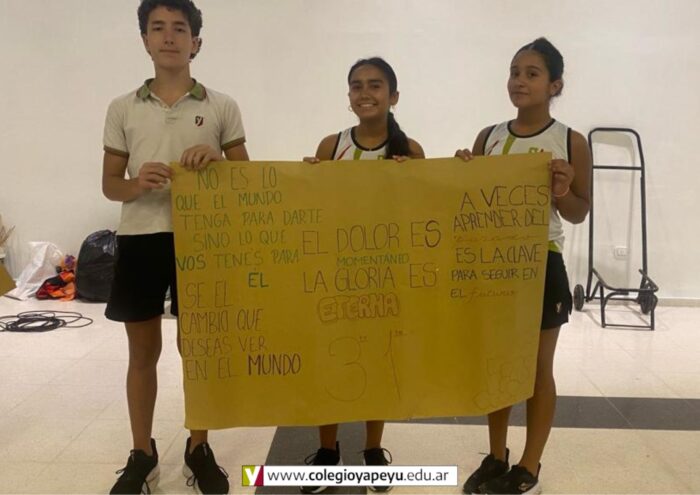 NO ES LO
QUE EL MUNDO
TENGA PARA DARTE
SINO LO QUE
VOS TENES PARA
ÉL
SE EL
CAMBIO QUE
DESEAS VER
EN EL MUNDO
EL DOLOR ES
MOMENTANIO
LA GLORIA ES
ETERNA
3ro 1ra
A VECES
APRENDER DEL
ES LA CLAVE
PARA SEGUIR EN
EL futuro
www.colegioyapeyu.edu.ar